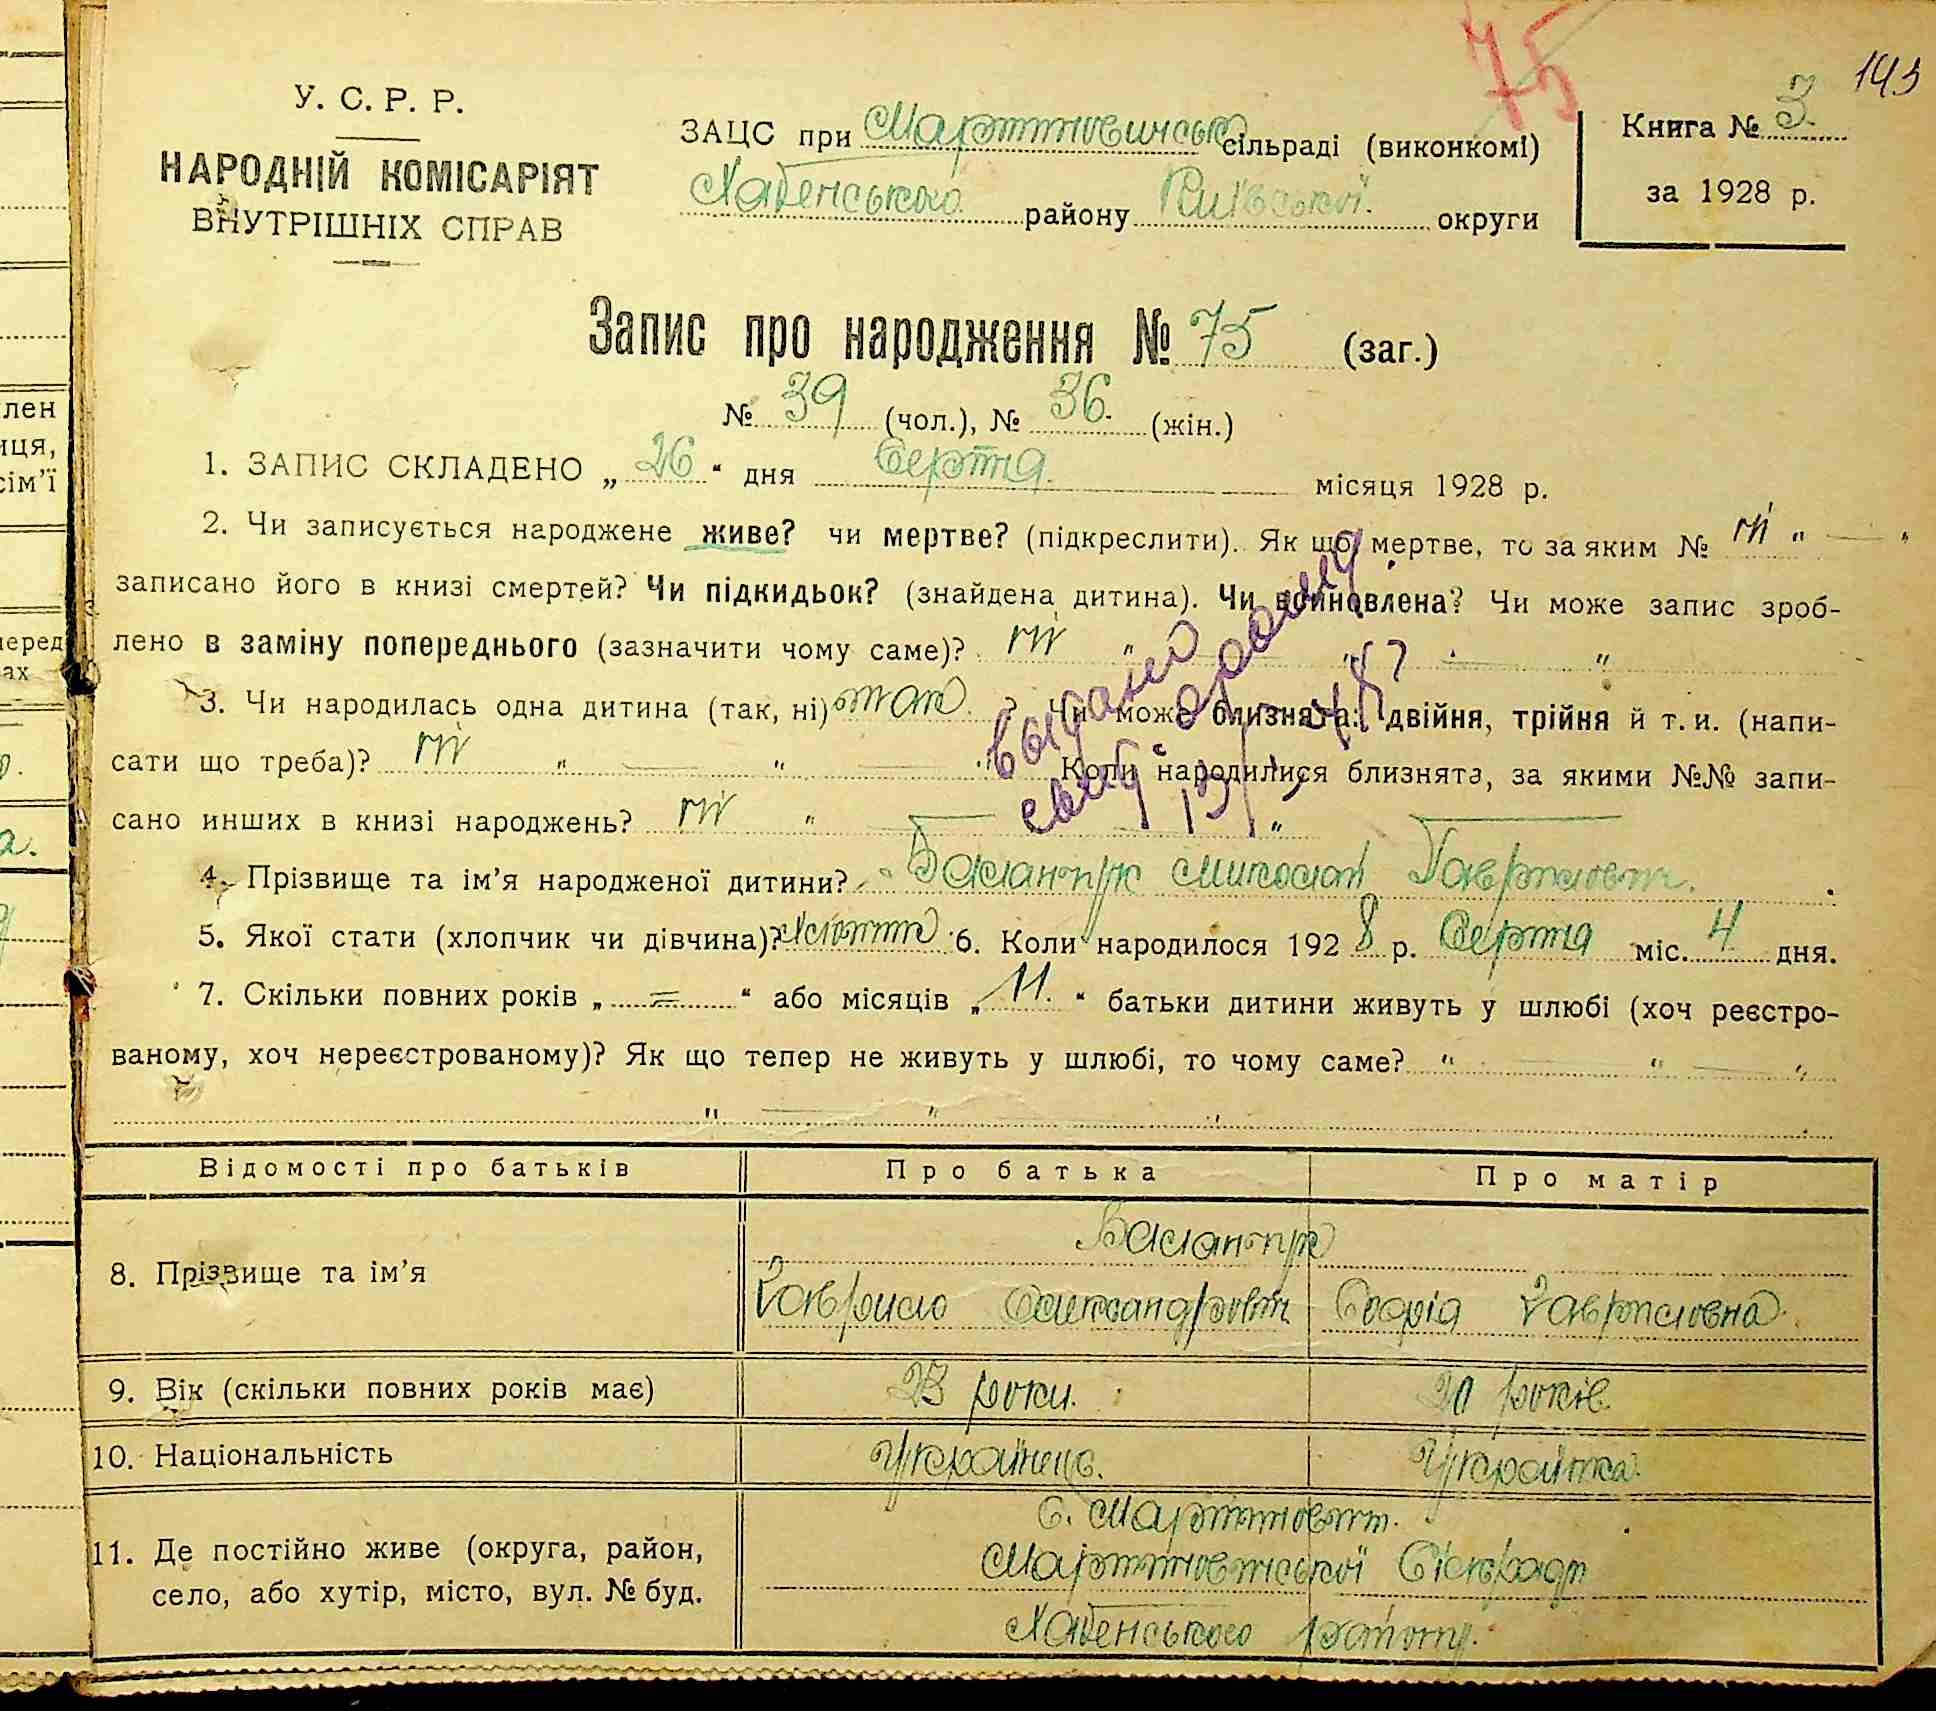 лен
иця,
сім'ї
перед
ах
а.
75
143
У. С. Р. Р.
НАРОДНІЙ КОМІСАРІЯТ
ВНУТРІШНІХ СПРАВ
ЗАЦС при Мартиновицькій сільраді (виконкомі)
Хабенського району Київської округи
Книга № 3
за 1928 р.
Запис про народження № 75 (заг.)
№ 39 (чол.), № 36. (жін.)
1. ЗАПИС СКЛАДЕНО „ 26 “ дня Серпня місяця 1928 р.
2. Чи записується народжене живе? чи мертве? (підкреслити). Як що мертве, то за яким № ні " — "
записано його в книзі смертей? Чи підкидьок? (знайдена дитина). Чи всиновлена? Чи може запис зроб-
лено в заміну попереднього (зазначити чому саме)? ні " " "
3. Чи народилась одна дитина (так, ні) так ? Чи може близнята: двійня, трійня й т. и. (напи-
сати що треба)? ні " — " — " Коли народилися близнята, за якими №№ запи-
сано инших в книзі народжень? ні " — "
выдано
4. Прізвище та ім'я народженої дитини? Миколай Гаврилович.
5. Якої стати (хлопчик чи дівчина)? Хлопчик 6. Коли народилося 1928 р. Серпня міс. 4 дня.
7. Скільки повних років „ = “ або місяців „ 11. “ батьки дитини живуть у шлюбі (хоч реєстро-
ваному, хоч нереєстрованому)? Як що тепер не живуть у шлюбі, то чому саме? " — " — "
" — " — "
Відомості про батьків Про батька Про матір
8. Прізвище та ім'я
Гаврило Олександрович Софія Гавриловна.
9. Вік (скільки повних років має) 23 роки. 20 років.
10. Національність Українець. Українка.
11. Де постійно живе (округа, район,
село, або хутір, місто, вул. № буд.
с. Мартиновичі.
Мартиновицької Сільради
Хабенського району.